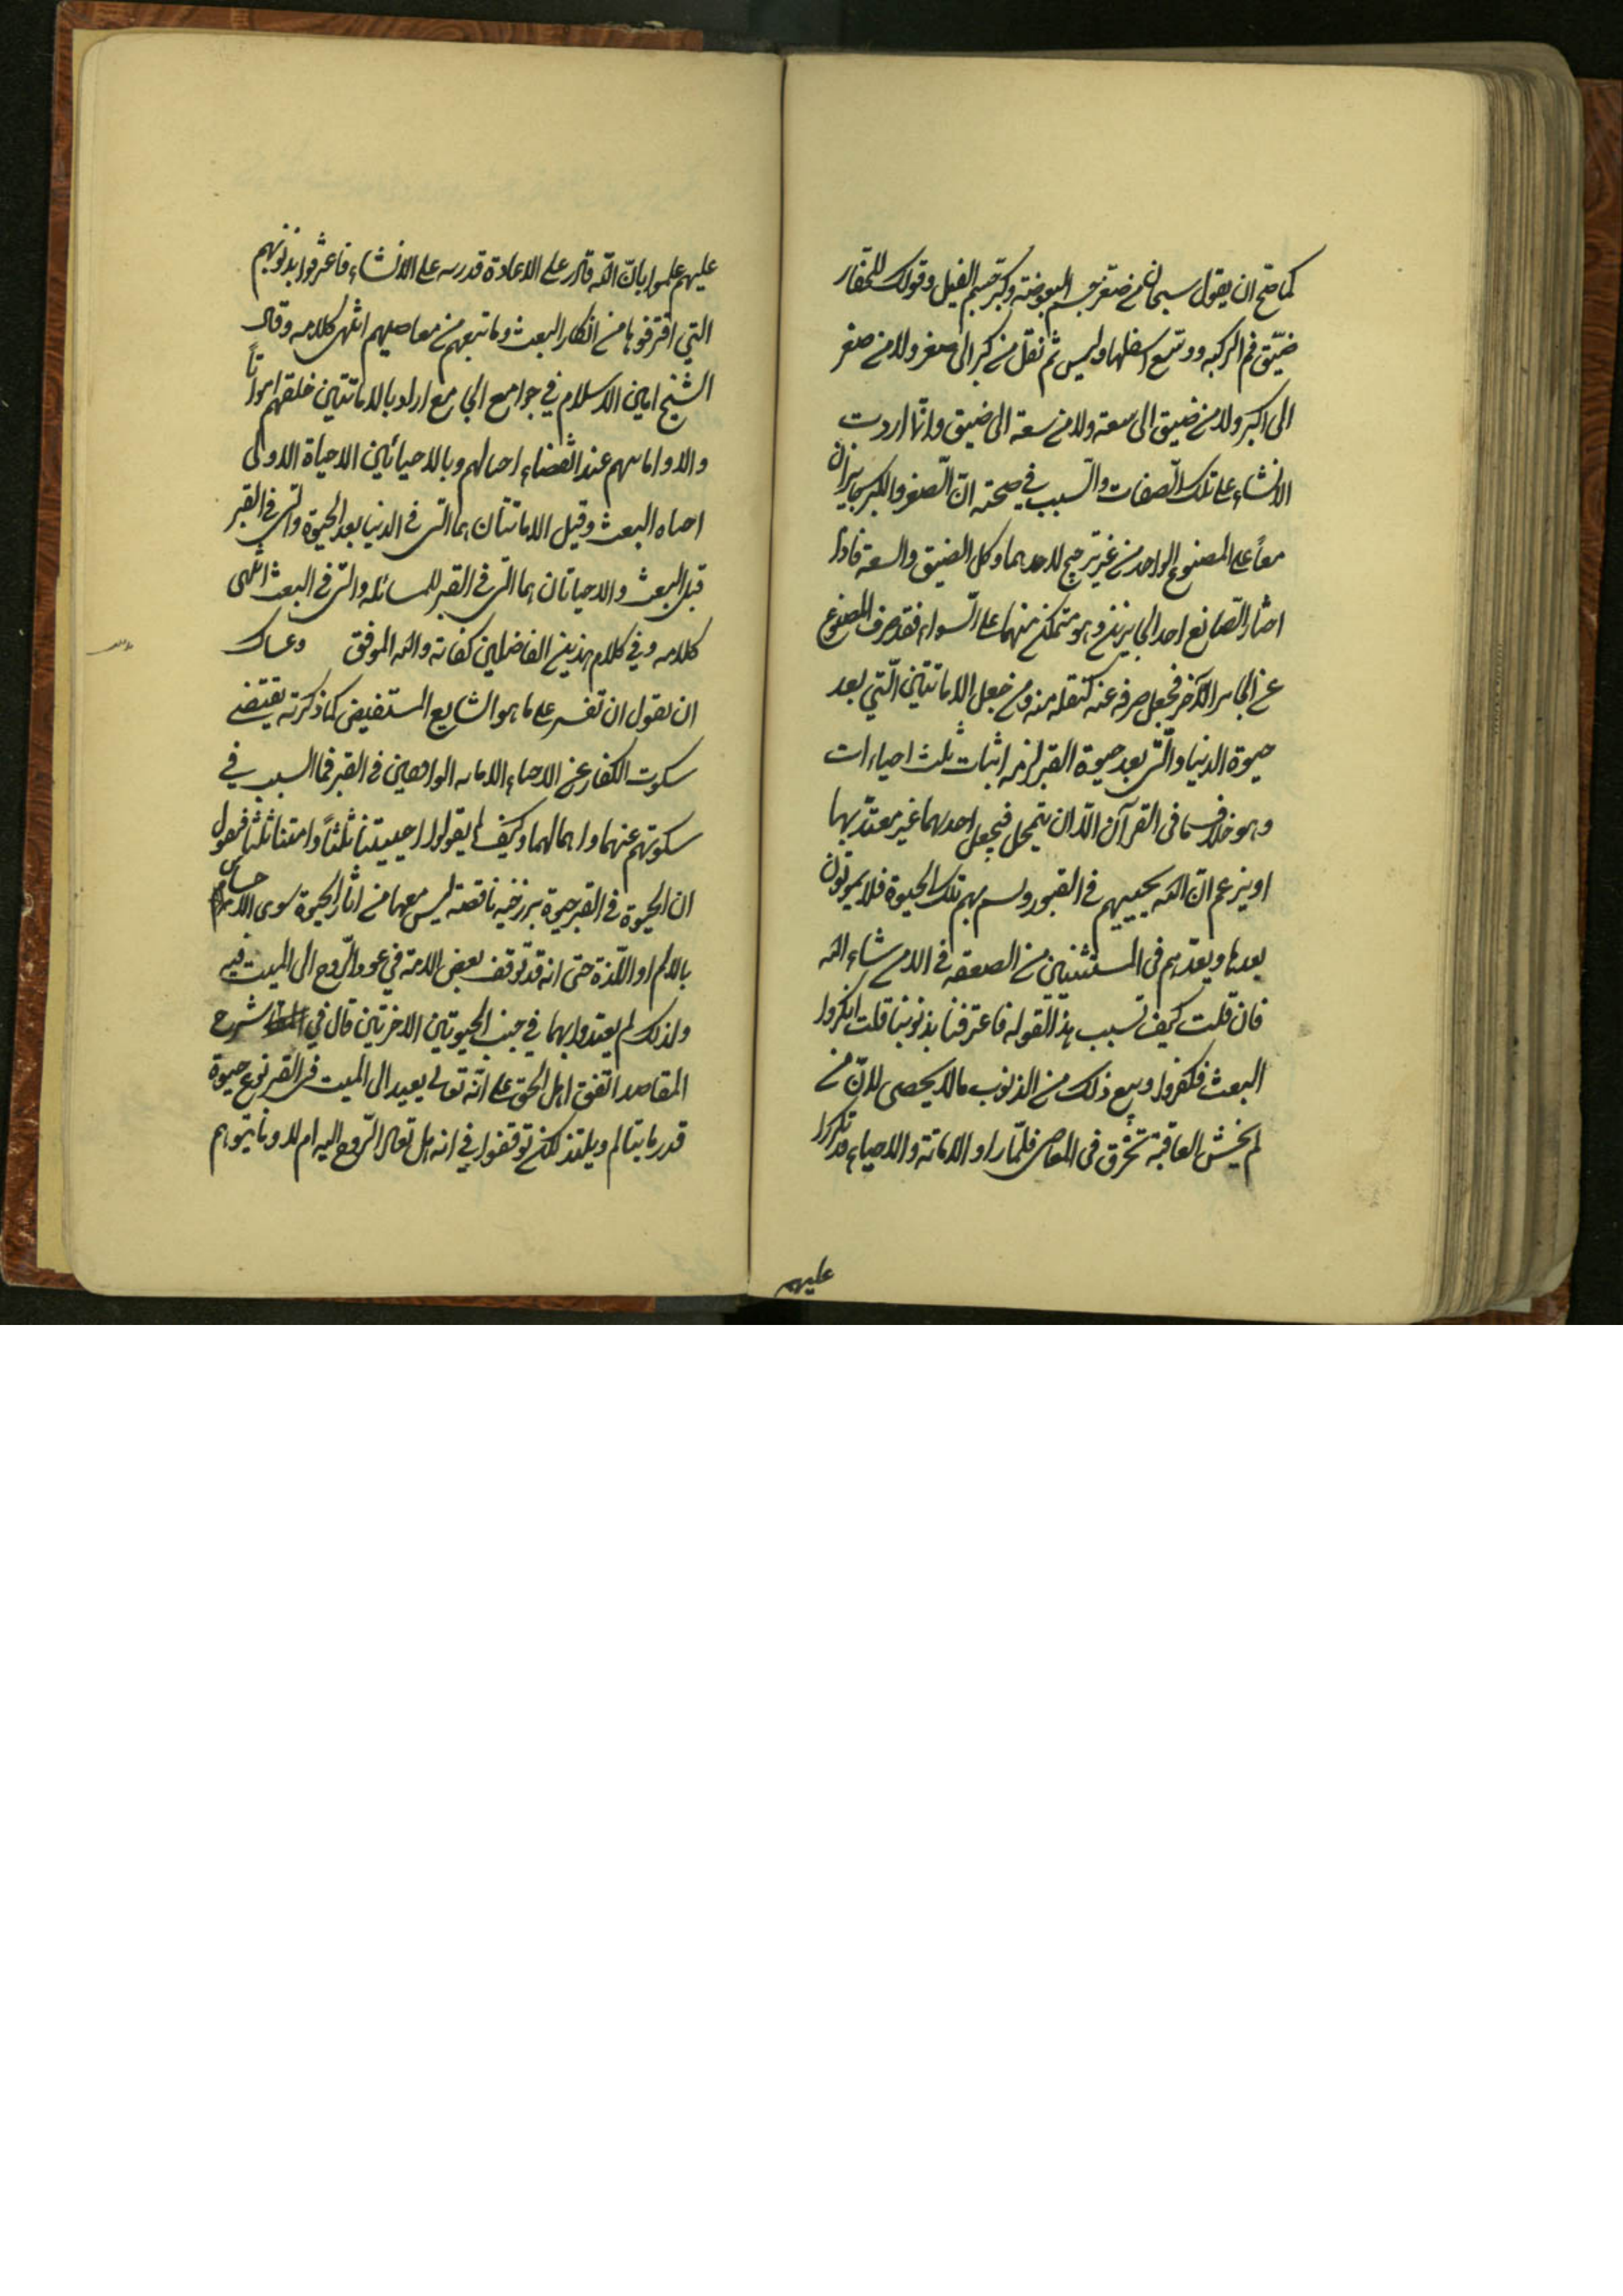 كما صح ان يقول سبحان من صغر جسم البعوضة وكبر جسم الفيل وقولك للحفار
ضيّق فم الركيه ووسّع اسفلها وليس ثم نقل من كبر الى صغر ولا من صغر
الى اكبر ولا من ضيق الى سعة ولا من سعة الى ضيق وانما اردت
الانشاء على تلك الصفات والسبب في صحته انّ الصغر والكبر جايزان
معاً على المصنوع الواحد من غير ترجيح لاحدهما وكل الضيق والسعة فاذا
اختار الصانع احد الجايزين وهو متمكن منهما على السواء فقد صرف المصنوع
عن الجايز الآخر فجعل صرفه عنه كنقله منه ومن جعل الاماتتين التي بعد
حيوة الدنيا والتي بعد حيوة القبر لزمه اثبات ثلث احياءات
وهو خلاف ما فى القرآن الا ان يتمحل فيجعل احدهما غير معتد بها
او يزعم انّ الله يحييهم فى القبور وتستمر بهم تلك الحيوة فلا يموتون
بعدها ويعدهم فى المستثنين من الصعقة فى الا من شاء الله
فان قلت كيف تسبب هذا لقوله فاعترفنا بذنوبنا قلت انكروا
البعث فكفروا وتبع ذلك من الذنوب مالا يحصى لانّ من
لم يخش العاقبة تخرق فى المعاصى فلمّا راو الاماتة والاحياء قد تكررا
عليهم
عليهم علموا بانّ الله قادر على الاعادة قدرته على الانشاء فاعترفوا بذنوبهم
التي اقترفوها من انكار البعث وما تبعهم من معاصيهم انتهى كلامه وقال
الشيخ امين الاسلام في جوامع الجامع اراد بالاماتتين خلقهم امواتاً
اولا واماتتهم عند انقضاء اجالهم وبالاحيائين الاحياة الاولى
واحياء البعث وقيل الاماتتان هما التي فى الدنيا بعد الحيوة والتي فى القبر
قبل البعث والاحياتان هما التي فى القبر للمسائله والتي فى البعث انتهى
كلامه وفي كلام هذين الفاضلين كفاية والله الموفق وعساك
ان تقول ان تفسير على ما هو الشايع المستفيض كما ذكرته يقتضي
سكوت الكفار عن الاحياء والاماتة الواقعين فى القبر فما السبب في
سكوتهم عنهما واهمالهما وكيف لم يقولوا احييتنا ثلثاً وامتنا ثلثا فنقول
ان الحيوة فى القبر حيوة برزخيه ناقصة ليس معها من اثار الحيوة سوى الاحساس
بالالم او اللّذة حتى انه قد توقف بعض الامة في عود الرّوح الى الميت فيه
ولذلك لم يعتدوا بهما في جنب الحيوتين الاخرتين قال في شرح
المقاصد اتفق اهل الحق على انّه تعالى يعيد الى الميت فى القبر نوع حيوة
قدر ما يتالم ويلتذ لكن توقفوا في انه هل تعاد الرّوح اليه ام لا وما يتوهم